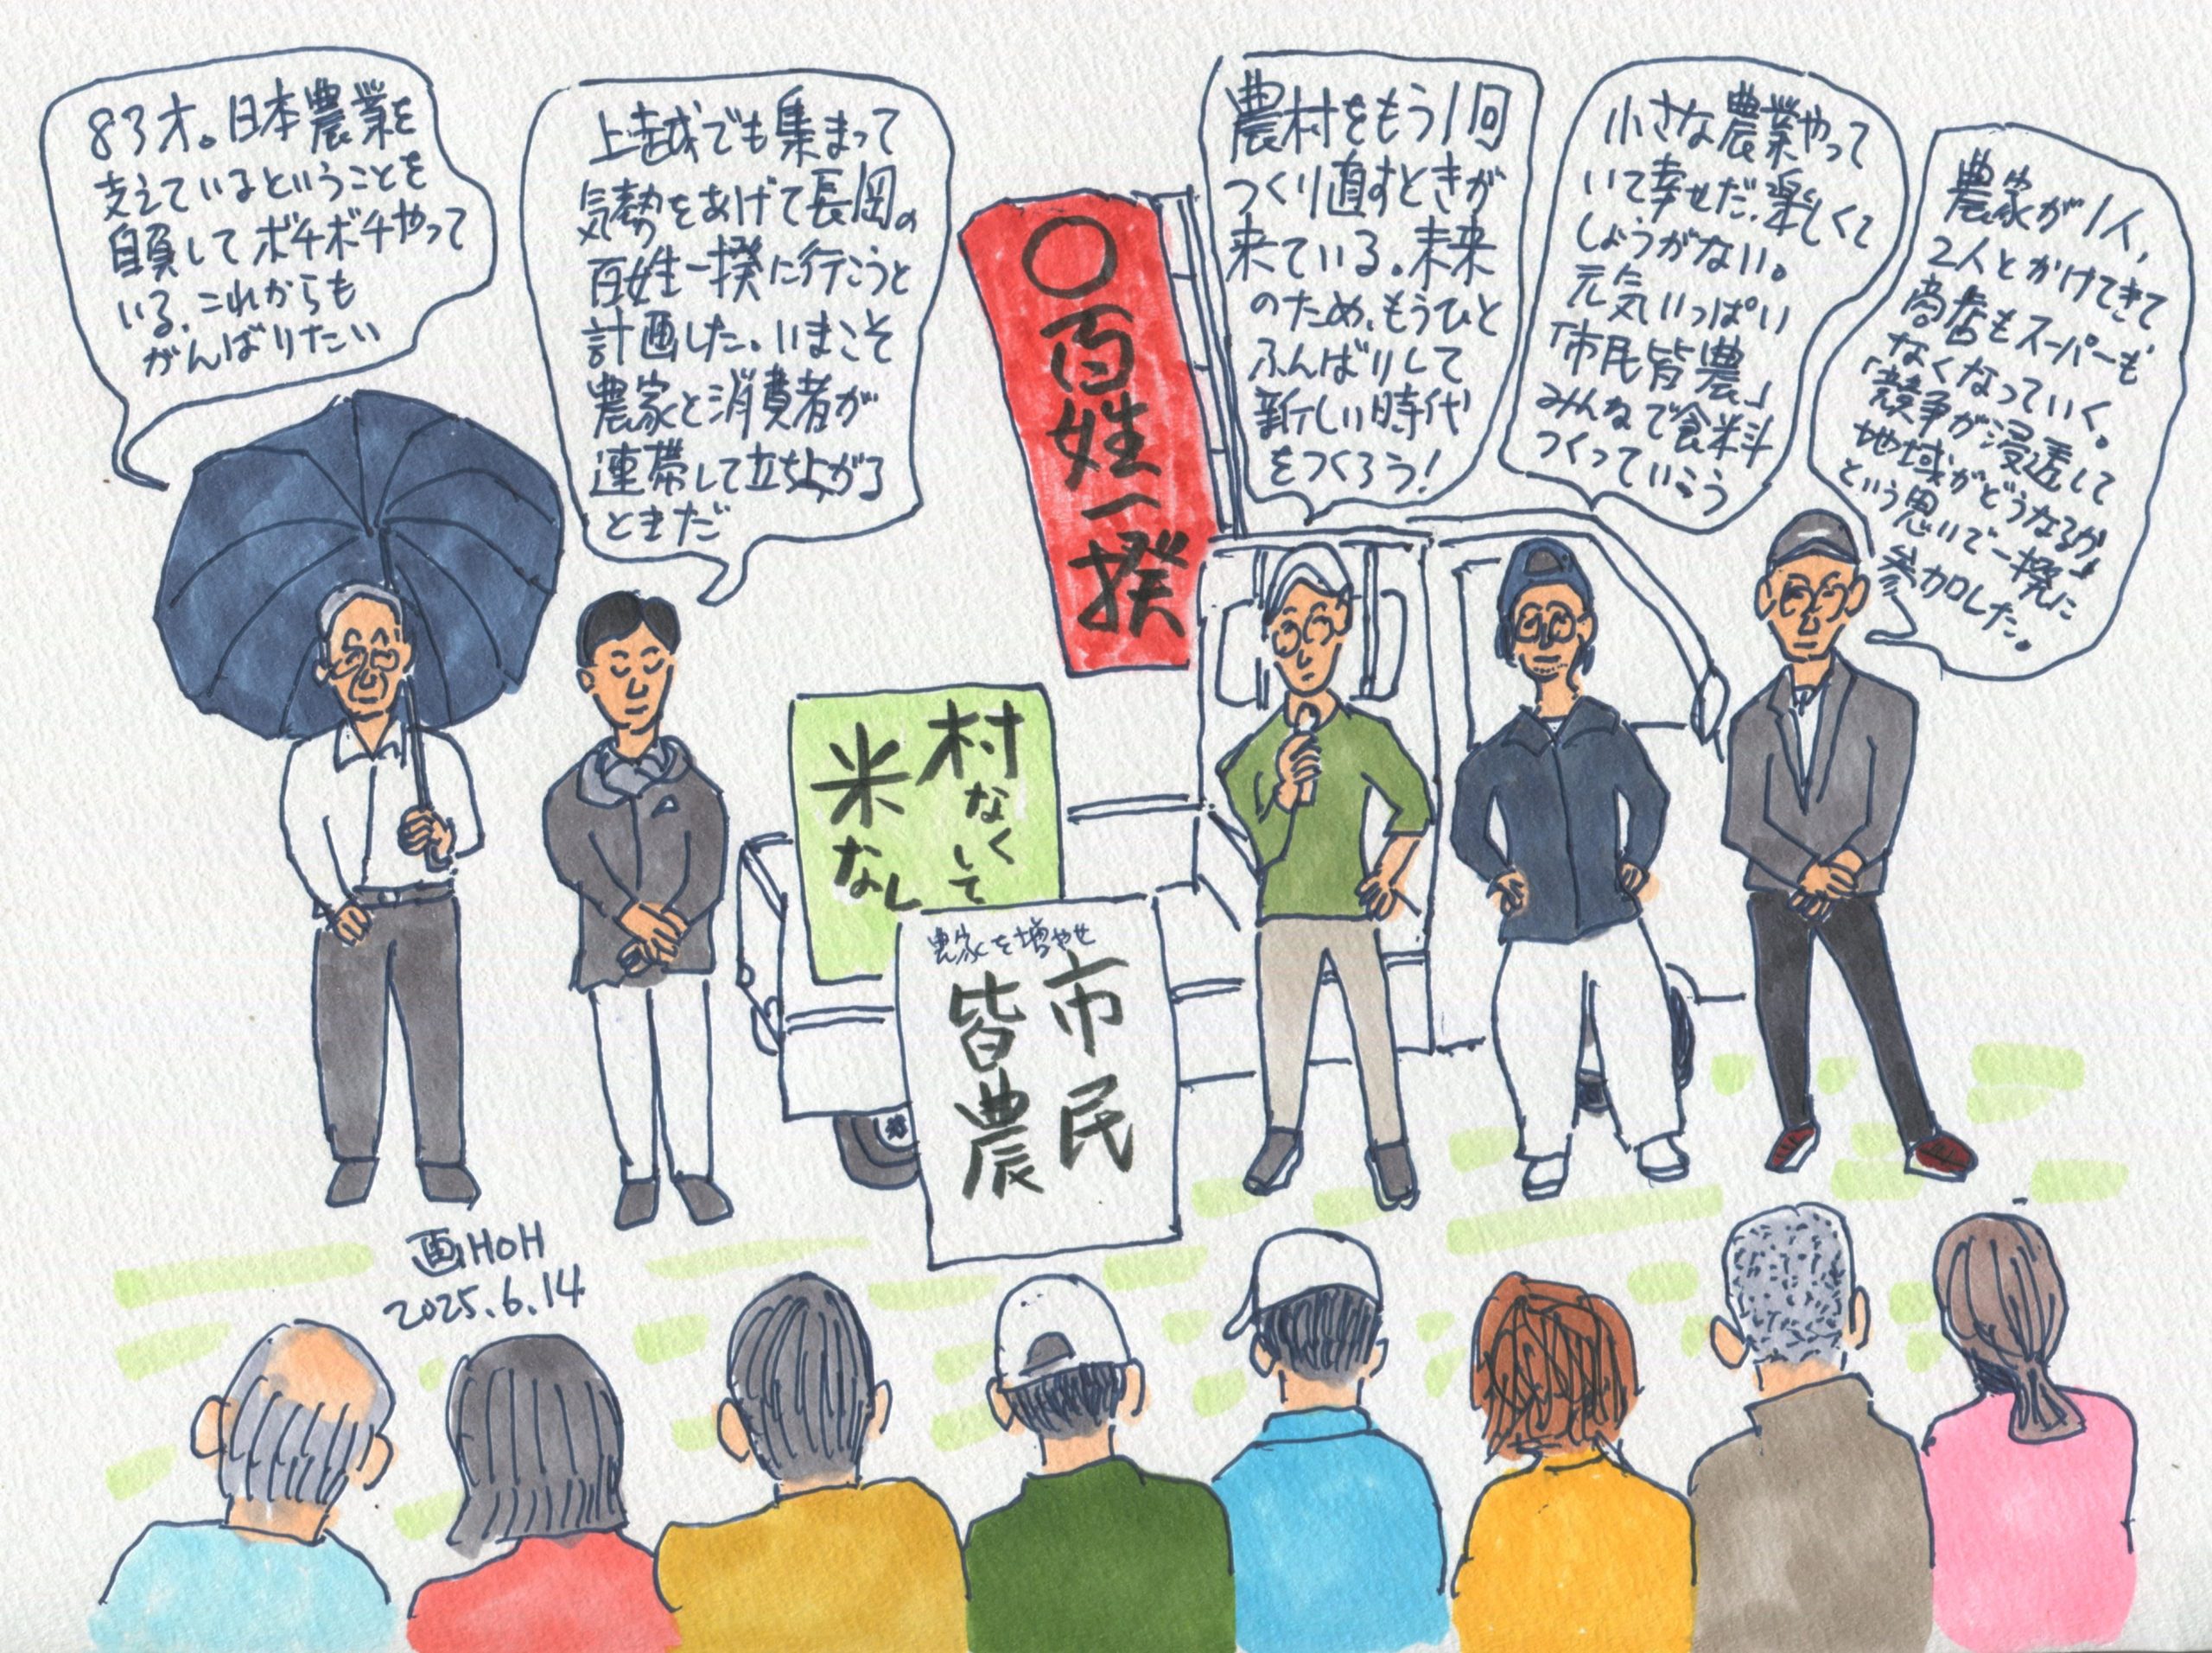 83才。日本農業を
支えているということを
自負してボチボチやって
いる、これからも
がんばりたい
上越でも集まって
気勢をあげて長岡の
百姓一揆に行こうと
計画した。いまこそ
農家と消費者が
連帯して立ち上がる
ときだ
〇百姓一揆
農村をもう1回
つくり直すときが
来ている。未来
のため、もうひと
ふんばりして
新しい時代
をつくろう!
小さな農業やって
いて幸せだ、楽しくて
しょうがない。
元気いっぱい
「市民皆農」
みんなで食料
つくっていこう
農家が1人、
2人とかけてきて
商店もスーパーも
なくなっていく。
「競争が浸透して
地域がどうなるか」
という思いで一揆に
参加した。
村なくして
米なし
農家を増やせ
市民
皆農
画HOH
2025.6.14